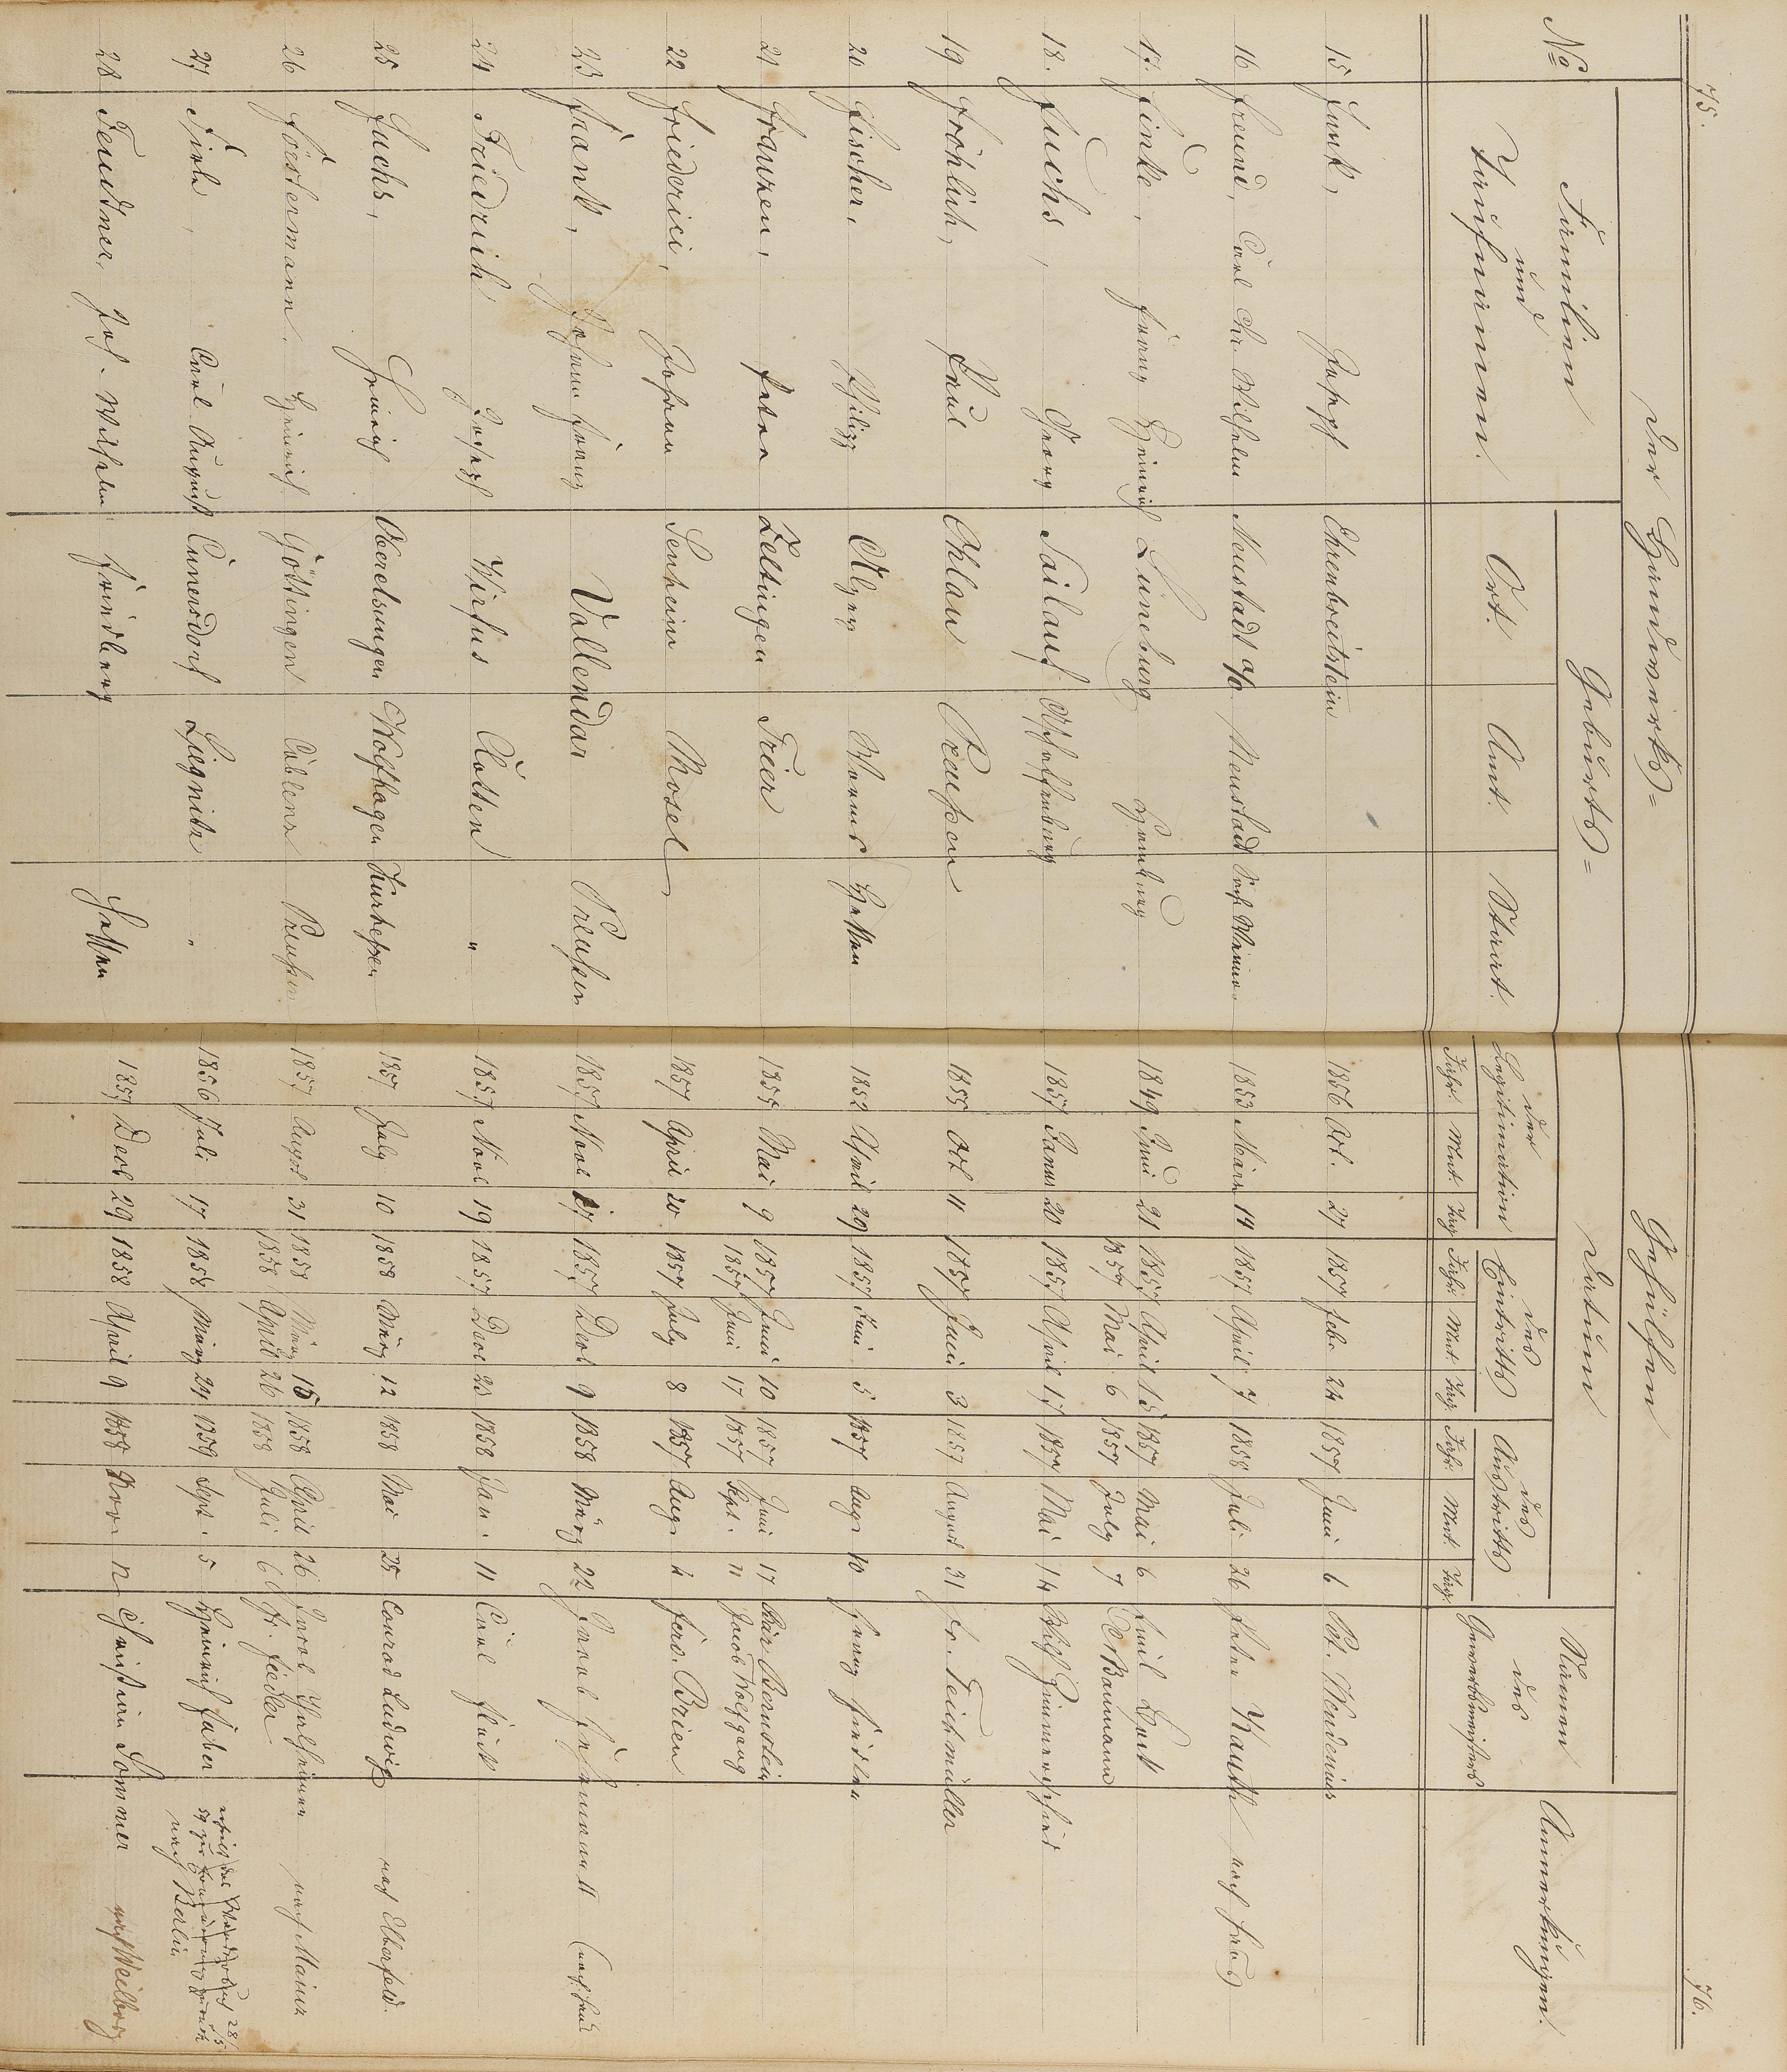 75.
76.
Der Handwerks=
Gehülfen
No
Familien
und
Taufnamen.
Geburts=
Ort.
Amt.
Staat.
Datum
der
Legitimation
des
Eintritts
des
Austritts
Jahr. Mnt. Tag.
Jahr. Mnt. Tag.
Jahr. Mnt. Tag.
Namen
des
Gewerbsmeisters
Anmerkungen.
15 Funk, Joseph Ehrenbreitstein 1856 Oct. 27 1857 Febr 24 1857 Juni 6 Pet. Mendenius
16 Freund, Carl Chr. Wilhelm Neustadt a/o Neustadt Sachs Weimar 1853 März 14 1857 April 7 1858 Juli 26 Peter Kauth nach Haus
17. Finke, Franz Heinrich Lüneburg Hamburg 1849 Juni 21 1857 April 15 1857 Mai 6 Emil Dack
1857 Mai 6 1857 July 7 Baumann
18. Fuchs, Georg Sailauf Aschaffenburg 1857 Janur 20 1857 April 17 1857 Mai 14 Zimmerschied
19 Fröhlich, Paul Ohlau Preußen 1855 Oct 11 1857 Juni 3 1857 August 31 Fr. Teichmüller
20 Fischer, Philipp Alzey Worms Hessen 1852 April 29 1857 Juni 5 1857 Aug 10 Franz
21 Franzen, Peter Zeltingen Trier 1855 Mai 9 1857 Juni 10 1857 Juni 17 Bär Bernstein
1857 Juni 17 1857 Sept. 11 Jacob Wolfgang
22 Friederici, Johann Senheim Mosel 1857 April 20 1857 July 8 1857 Aug 4 Ferd. Brien
23 Frank, Johann Franz Vallendar Preußen 1857 Nov 27 1857 Dec 9 1858 März 22 Jacob (nach Haus
24 Friedrich Joseph Wirfus Cotten " 1857 Nov 19 1857 Dec 23 1858 Jan. 11 Carl Flück
25 Fuchs, Heinrich Oberelsungen Wolfhagen Kurhessen 1857 July 10 1858 März 12 1858 Mai 25 Conrad Ludwig nach Elberfeld.
26 Föstermann. Heinrich Göttingen Coblenz Preußen 1857 Augst 31 1858 März 15 1858 April 26 Jacob nach Mainz
1858 April 26 1858 Juli 6 Fr. Fiedler
27 Carl August Cunersdorf Liegnitz " 1856 Juli 17 1858 März 24 1859 Sept. 5 Heinrich Faber erhielt das Wanderbuch 28/5
59 zur
nach Berlin
28 Feustner, Joh. Wilhelm Friedberg Hessen 1857 Dec 29 1858 April 9 1858 Nov 12 Christian Sommer nach Weilburg